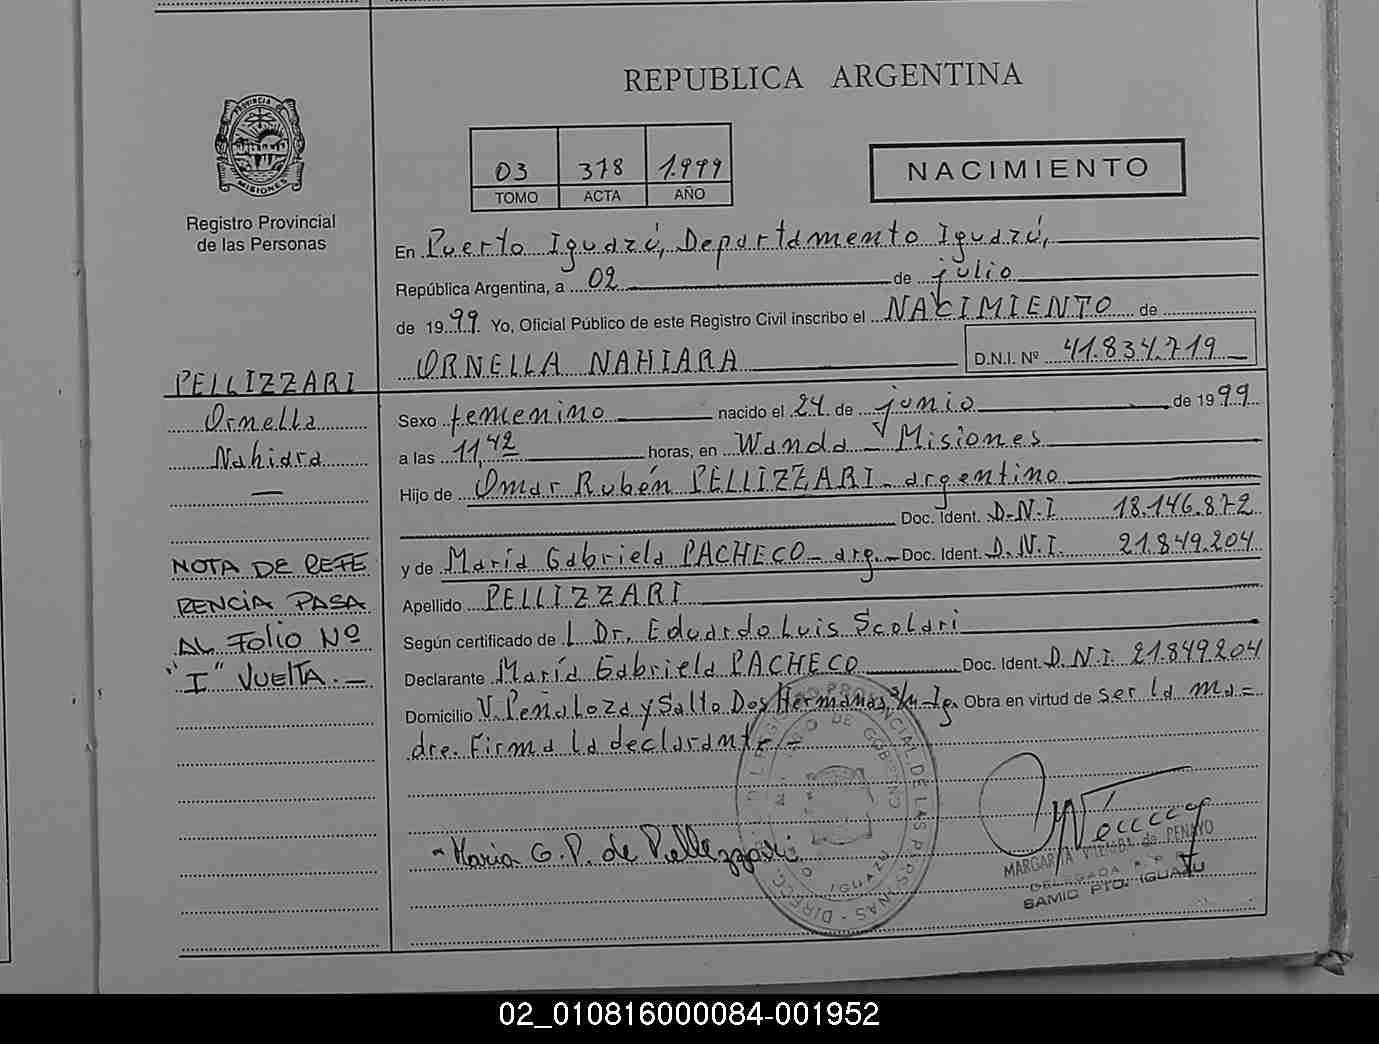 REPUBLICA ARGENTINA
PROVINCIA DE
MISIONES
Registro Provincial
de las Personas
03 378 1.999
TOMO ACTA AÑO
NACIMIENTO
En Puerto Iguazú, Departamento Iguazú,
República Argentina, a 02 de julio
de 1999 Yo, Oficial Público de este Registro Civil inscribo el NACIMIENTO de
ORNELLA NAHIARA D.N.I. Nº 41.834.719
PELLIZZARI
Ornella
Nahiara
—
NOTA DE REFE
RENCIA PASA
AL FOLIO Nº
"I" VUELTA.—
Sexo femenino nacido el 24 de junio de 1999
a las 11,42 horas, en Wanda - Misiones
Hijo de Omar Rubén PELLIZZARI - argentino
Doc. Ident. D.N.I 18.146.872
y de María Gabriela PACHECO - arg. - Doc. Ident. D.N.I. 21.849.204
Apellido PELLIZZARI
Según certificado de l Dr. Eduardo Luis Scolari
Declarante María Gabriela PACHECO Doc. Ident. D.N.I. 21.849204
Domicilio V. Peñaloza y Salto Dos Hermanas, s/n - Ig. Obra en virtud de ser la ma=
dre. Firma la declarante -
Maria G. P. de Pellizzari
IGUAZU
MARGARITA VIEMBA de PENAYO
DELEGADA
SAMIC PTO. IGUAZU
02_010816000084-001952